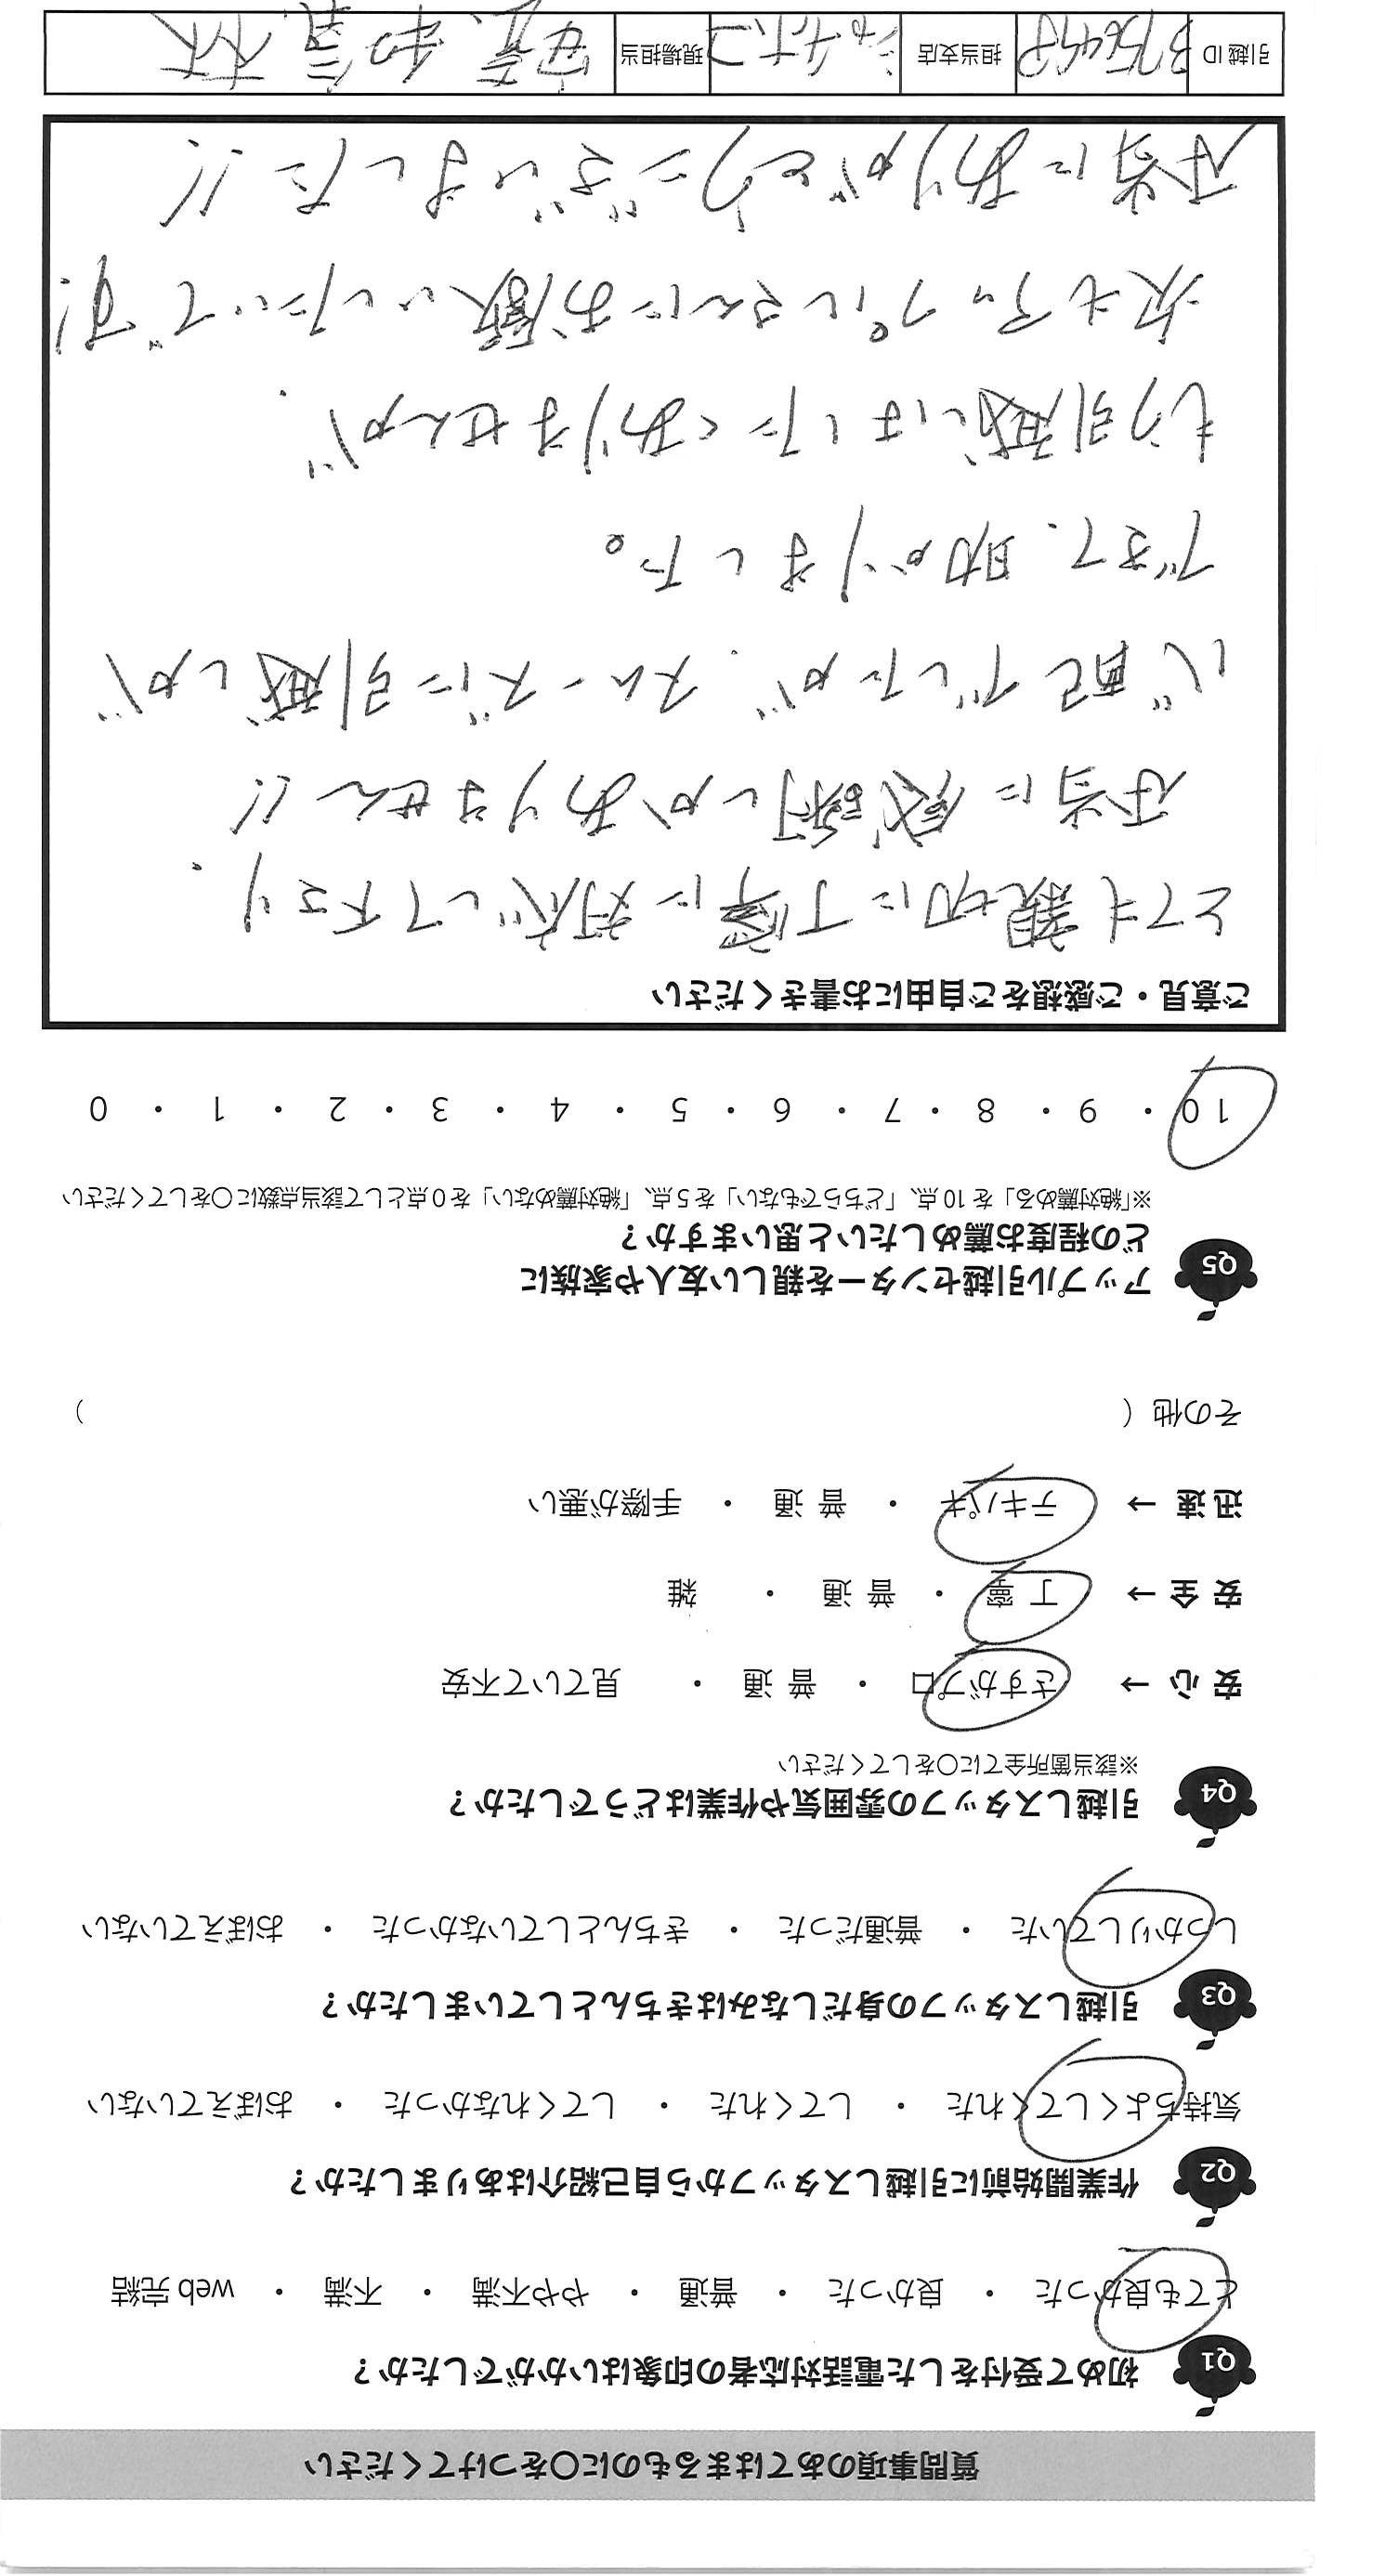 質問事項のあてはまるものに〇をつけてください
Q1 初めて受付をした電話対応者の印象はいかがでしたか？
とても良かった ・ 良かった ・ 普通 ・ やや不満 ・ 不満 ・ web 完結
Q2 作業開始前に引越しスタッフから自己紹介はありましたか？
気持ちよくしてくれた ・ してくれた ・ してくれなかった ・ おぼえていない
Q3 引越しスタッフの身だしなみはきちんとしていましたか？
しっかりしていた ・ 普通だった ・ きちんとしていなかった ・ おぼえていない
Q4 引越しスタッフの雰囲気や作業はどうでしたか？
※該当箇所全てに〇をしてください
安 心 → さすがプロ ・ 普 通 ・ 見ていて不安
安 全 → 丁 寧 ・ 普 通 ・ 雑
迅 速 → テキパキ ・ 普 通 ・ 手際が悪い
その他（ ）
Q5 アップル引越センターを親しい友人や家族に
どの程度お薦めしたいと思いますか？
※「絶対薦める」を 10 点、「どちらでもない」を 5 点、「絶対薦めない」を 0 点として該当点数に〇をしてください
10 ・ 9 ・ 8 ・ 7 ・ 6 ・ 5 ・ 4 ・ 3 ・ 2 ・ 1 ・ 0
ご意見・ご感想をご自由にお書きください
とても親切に丁寧に対応して下さり、
本当に感謝しかありません!!
心配でしたが、スムーズに引越しが
できて、助かりました。
もう引越しはしたくありませんが、
次もアップルさんにお願いしたいです!
本当にありがとうございました!!
引越 ID 担当支店 現場担当